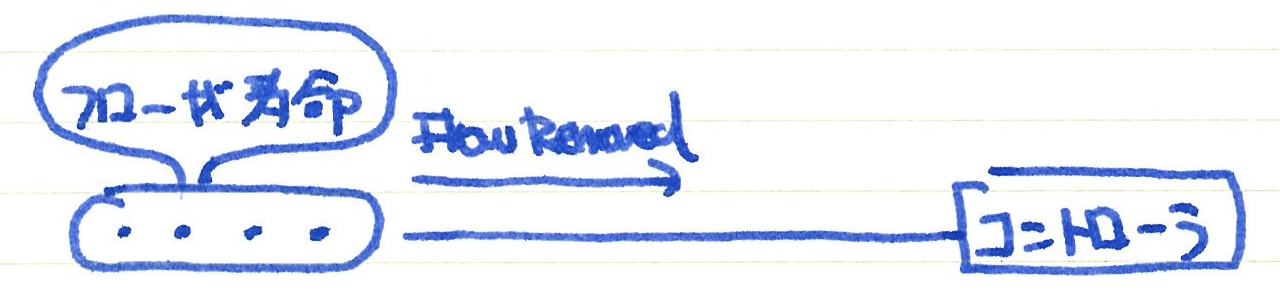 フロー 寿命
Flow Removed
コントローラ